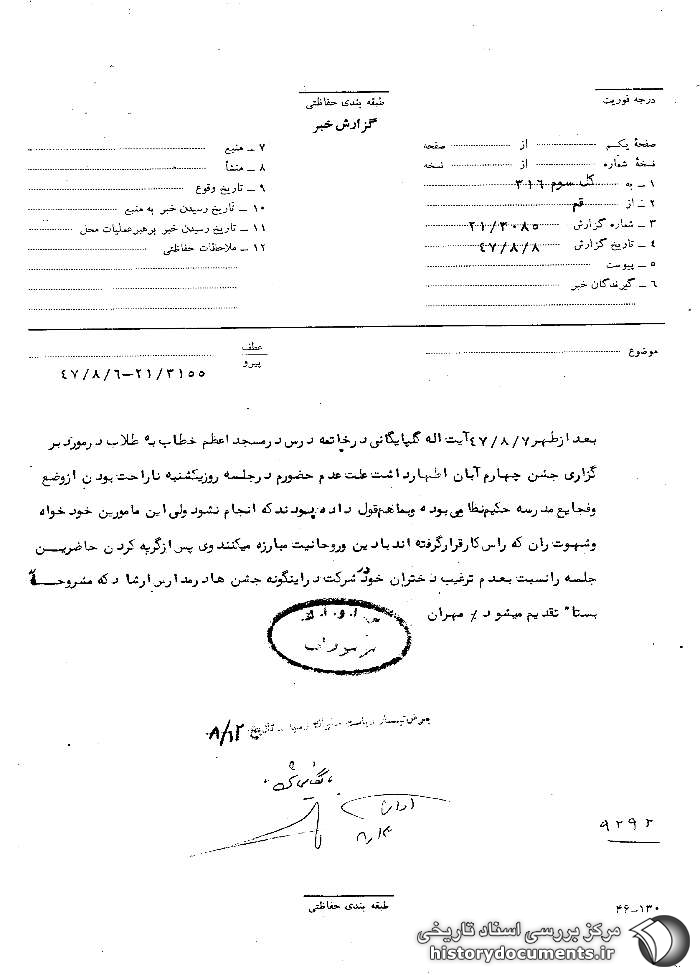 درجه فوریت
طبقه بندی حفاظتی
گزارش خبر
صفحهٔ یکم از صفحه
نسخهٔ شماره از نسخه
۱ ـ به کل سوم ۳۱۶
۲ ـ از قم
۳ ـ شماره گزارش ۲۱/۳۰۸۵
۴ ـ تاریخ گزارش ۴۷/۸/۸
۵ ـ پیوست
۶ ـ گیرندگان خبر
۷ ـ منبع
۸ ـ منشأ
۹ ـ تاریخ وقوع
۱۰ ـ تاریخ رسیدن خبر به منبع
۱۱ ـ تاریخ رسیدن خبر برهبر عملیات محل
۱۲ ـ ملاحظات حفاظتی
موضوع
عطف
پیرو
۴۷/۸/۶-۲۱/۳۱۵۵
بعد ازظهر ۴۷/۸/۷ آیت اله گلپایگانی درخاتمه درس درمسجد اعظم خطاب به طلاب درمورد بر
گزاری جشن چهارم آبان اظهارداشت علت عدم حضورم درجلسه روزیکشنبه ناراحت بودن ازوضع
وفجایع مدرسه حکیم نظامی بوده وبماهم قول داده بودند که انجام نشود ولی این مامورین خود خواه
وشهوت ران که راس کار قرارگرفته اند بادین وروحانیت مبارزه میکنند وی پس ازگریه کردن حاضرین
جلسه رانسبت بعدم ترغیب دختران خود شرکت دراینگونه جشن ها درمدارس ارشاد که مشروحـــاً
بستا" تقدیم میشود ٪ مهران
۸/۱۲
۹۲۹۲
طبقه بندی حفاظتی
۴۶-۱۳۰
مرکز بررسی اسناد تاریخی
historydocuments.ir